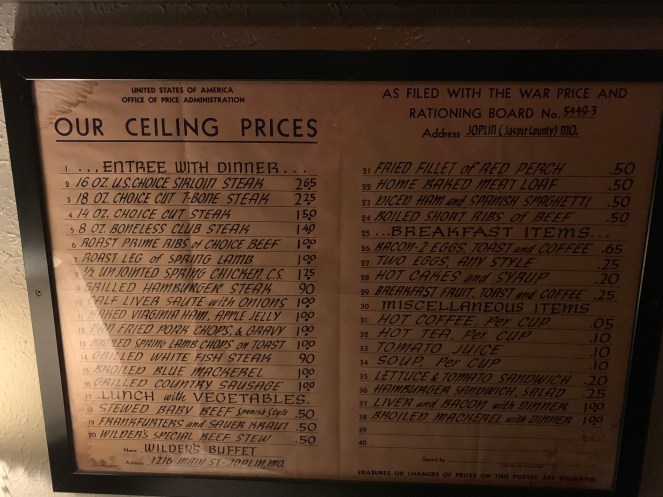 UNITED STATES OF AMERICA
OFFICE OF PRICE ADMINISTRATION
OUR CEILING PRICES
1 ...ENTREE WITH DINNER...
2 16 OZ. U.S. CHOICE SIRLOIN STEAK 2.65
3 18 OZ. CHOICE CUT T-BONE STEAK 2.25
4 14 OZ. CHOICE CUT STEAK 1.50
5 8 OZ. BONELESS CLUB STEAK 1.40
6 ROAST PRIME RIBS of CHOICE BEEF 1.00
7 ROAST LEG of SPRING LAMB 1.00
8 1/2 UNJOINTED SPRING CHICKEN, C.S. 1.25
9 GRILLED HAMBURGER STEAK 90
10 CALF LIVER SAUTE with ONIONS 1.00
11 BAKED VIRGINIA HAM, APPLE JELLY 1.00
12 PAN FRIED PORK CHOPS, & GRAVY 1.00
13 BROILED SPRING LAMB CHOPS on TOAST 1.00
14 GRILLED WHITE FISH STEAK 90
15 BROILED BLUE MACKEREL 1.00
16 GRILLED COUNTRY SAUSAGE 1.00
17 ...LUNCH with VEGETABLES.
18 STEWED BABY BEEF Spanish Style .50
19 FRANKFURTERS and SAUER KRAUT .50
20 WILDER'S SPECIAL BEEF STEW .50
Name WILDER'S BUFFET
Address 1216 MAIN ST-JOPLIN, MO.
AS FILED WITH THE WAR PRICE AND
RATIONING BOARD No. 5449-3
Address JOPLIN (Jasper County) MO.
21 FRIED FILLET of RED PERCH .50
22 HOME BAKED MEAT LOAF .50
23 DICED HAM and SPANISH SPAGHETTI .50
24 BOILED SHORT RIBS of BEEF .50
25 ...BREAKFAST ITEMS...
26 BACON-2 EGGS, TOAST and COFFEE .65
27 TWO EGGS, ANY STYLE .25
28 HOT CAKES and SYRUP .20
29 BREAKFAST FRUIT, TOAST and COFFEE .25
30 MISCELLANEOUS ITEMS
31 HOT COFFEE, Per CUP .05
32 HOT TEA, Per CUP .10
33 TOMATO JUICE .10
34 SOUP, Per CUP .10
35 LETTUCE & TOMATO SANDWICH .20
36 HAMBURGER SANDWICH, SALAD .25
37 LIVER and BACON with DINNER 1.00
38 BROILED MACKEREL with DINNER 1.00
39
40
Signed by
ERASURES OR CHANGES OF PRICES ON THIS POSTER ARE UNLAWFUL